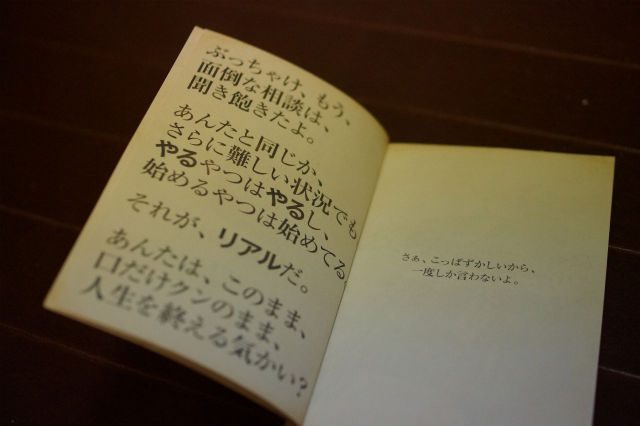 ぶっちゃけ、もう、
面倒な相談は、
聞き飽きたよ。
あんたと同じか、
さらに難しい状況でも
やるやつはやるし、
始めるやつは始めてる
それが、リアルだ。
あんたは、このまま、
口だけクンのまま、
人生を終える気かい?
さぁ、こっぱずかしいから、
一度しか言わないよ。